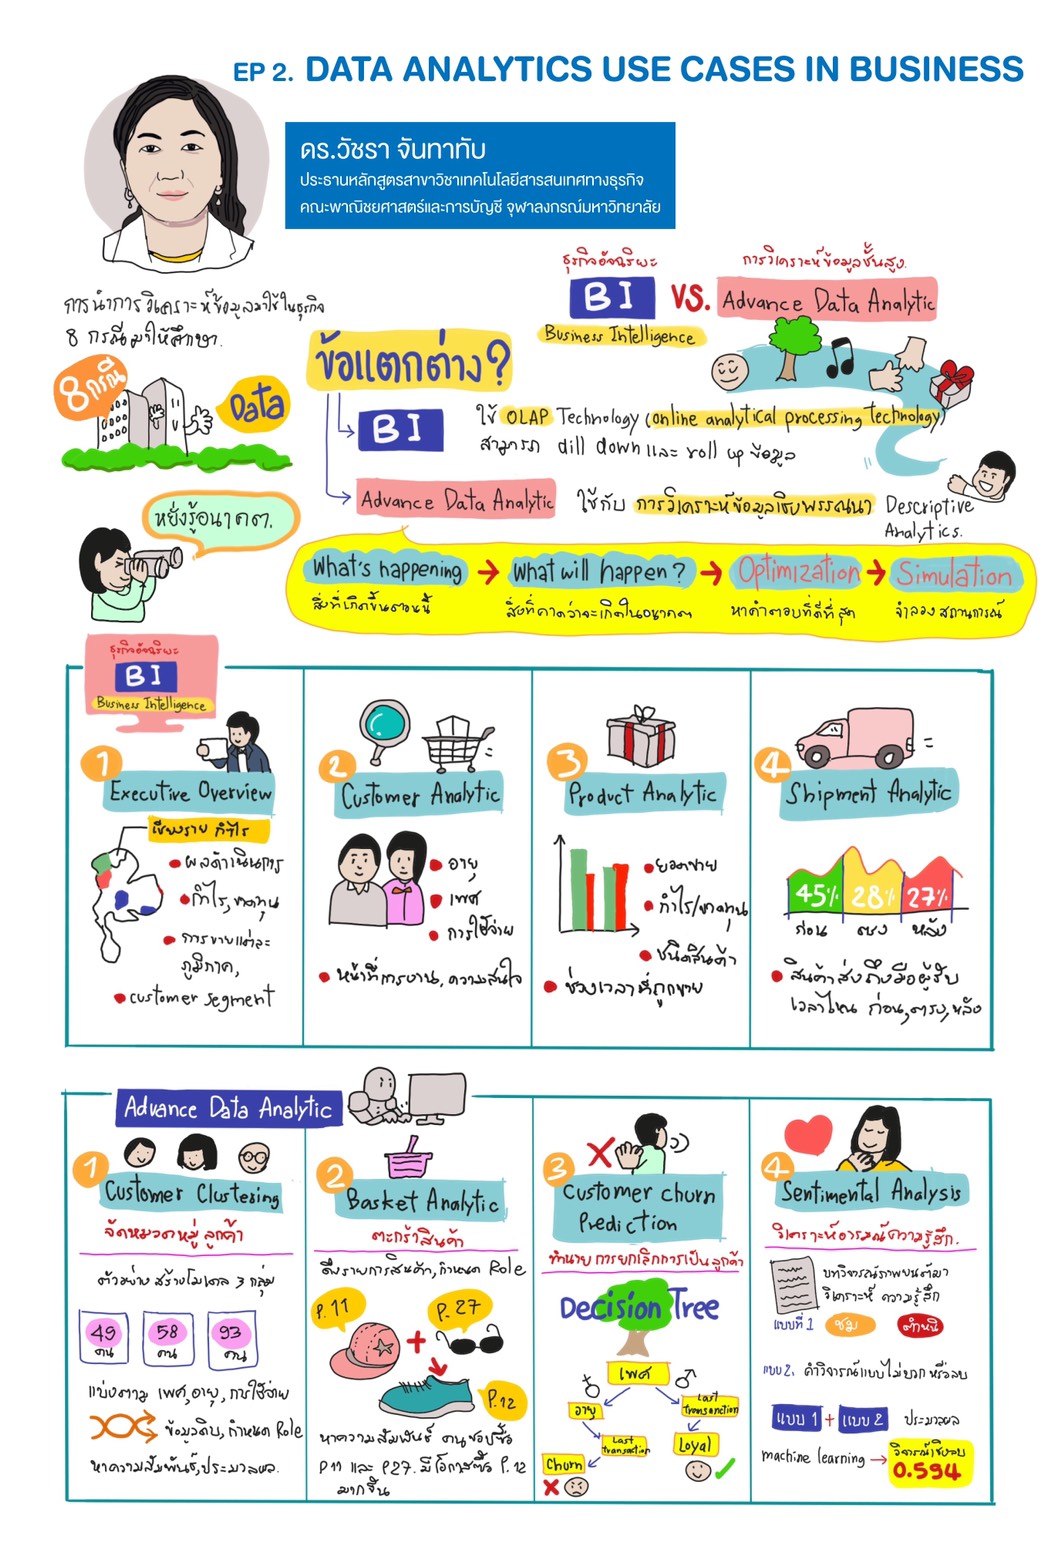 EP 2. DATA ANALYTICS USE CASES IN BUSINESS
ดร.วัชรา จันทาทับ
ประธานหลักสูตรสาขาวิชาเทคโนโลยีสารสนเทศทางธุรกิจ
คณะพาณิชยศาสตร์และการบัญชี จุฬาลงกรณ์มหาวิทยาลัย
การนำการวิเคราะห์ข้อมูลมาใช้ในธุรกิจ
8 กรณีมาให้ศึกษา.
8 กรณี
Data
ธุรกิจอัจฉริยะ
BI
Business Intelligence
VS.
การวิเคราะห์ข้อมูลชั้นสูง.
Advance Data Analytic
ข้อแตกต่าง?
BI
ใช้ OLAP Technology (online analytical processing technology)
สามารถ dill down และ roll up ข้อมูล
Advance Data Analytic
ใช้กับ การวิเคราะห์ข้อมูลเชิงพรรณนา Descriptive
Analytics.
หยั่งรู้อนาคต.
What's happening → What will happen? → Optimization → Simulation
สิ่งที่เกิดขึ้นตอนนี้
สิ่งที่คาดว่าจะเกิดในอนาคต
หาคำตอบที่ดีที่สุด
จำลองสถานการณ์
ธุรกิจอัจฉริยะ
BI
Business Intelligence
1
Executive Overview
เชียงราย กำไร
ผลดำเนินการ
กำไร, ขาดทุน
การขายแต่ละ
ภูมิภาค,
customer segment
2
Customer Analytic
อายุ
เพศ
การใช้จ่าย
หน้าที่การงาน, ความสนใจ
3
Product Analytic
ยอดขาย
กำไร/ขาดทุน
ชนิดสินค้า
ช่วงเวลาที่ถูกขาย
4
Shipment Analytic
45% 28% 27%
ก่อน ตรง หลัง
สินค้าส่งถึงมือผู้รับ
เวลาไหน ก่อน, ตรง, หลัง
Advance Data Analytic
1
Customer Clustering
จัดหมวดหมู่ลูกค้า
ตัวอย่าง สร้างโมเดล 3 กลุ่ม
49 คน
58 คน
93 คน
แบ่งตาม เพศ, อายุ, การใช้จ่าย
ข้อมูลดิบ, กำหนด Role
หาความสัมพันธ์, ประมวลผล.
2
Basket Analytic
ตะกร้าสินค้า
ดึงรายการสินค้า, กำหนด Role
P.11 + P.27
P.12
หาความสัมพันธ์ คนชอบซื้อ
P11 และ P27. มีโอกาสซื้อ P.12
มากขึ้น
3
Customer churn
Prediction
ทำนาย การยกเลิกการเป็นลูกค้า
Decision Tree
เพศ
อายุ
Last
transanction
Last
transaction
Loyal
Churn
4
Sentimental Analysis
วิเคราะห์อารมณ์ความรู้สึก.
บทวิจารณ์ภาพยนต์มา
วิเคราะห์ ความรู้สึก
แบบที่ 1 ชม ตำหนิ
แบบ 2. คำวิจารณ์แบบไม่บวก หรือลบ
แบบ 1 + แบบ 2 ประมวลผล
machine learning → วิจารณ์เชิงลบ
0.594